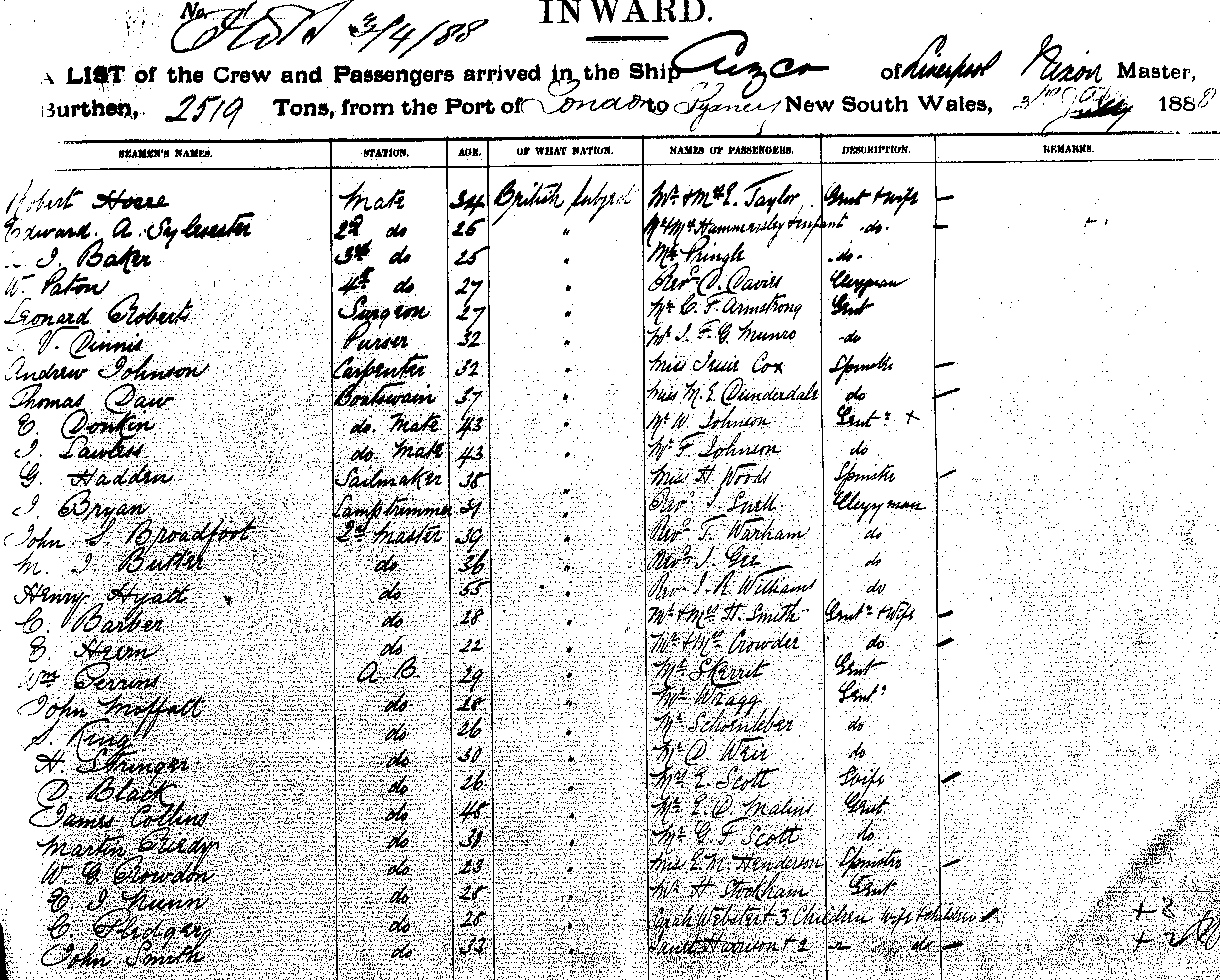 INWARD.
No.
3/4/88
A LIST of the Crew and Passengers arrived in the Ship Cuzco of Liverpool Nixon Master,
Burthen, 2519 Tons, from the Port of London to Sydney New South Wales, 188
SEAMEN'S NAMES. STATION. AGE. OF WHAT NATION. NAMES OF PASSENGERS. DESCRIPTION. REMARKS.
Robert Mate 34 British Mr & Mrs E. Taylor Gent & wife —
Edward. A. Sylvester 2d do 26 " Mr & Mrs Hammersley & infant do. —
J. Baker 3d do 25 " Pringle do.
W. Paton 4th do 27 " Revd D. Davies Clergyman
Leonard Roberts Surgeon 27 " Mr C. F. Armstrong Gent
V. Dinnis Purser 32 " Mr J. F. G. Munro do
Andrew Johnson Carpenter 32 " Miss Cox Spinster —
Thomas Daw Boatswain 37 " Miss M. E. Dunderdale do —
E. Donkin do. Mate 43 " Mr W. Johnson Gent +
J. Lawless do Mate 43 " Mr F. Johnson do
G. Hadden Sailmaker 38 " Miss H. Woods Spinster —
J. Bryan Lamptrimmer " Revd J. Snell Clergyman
John S. Broadfoot 2d Master 39 " Revd T. Warham do
M. J. Butler do 36 " Revd J. Gee do
Henry Hyatt do 55 " Revd J. R. Williams do
C. Barber do 28 " Mr & Mrs H. Smith Gent & Wife —
E. Hearn do 22 " Mr & Mrs Crowder do —
Wm Perrons A B 29 " Mr Skerrit Gent
John Moffatt do 28 " Wragg Gent
King do 26 " Mr do
H. Stringer do 30 " Mr D. Weir do
Black do 26 " Mrs E. Scott Wife —
James Collins do 48 " Mr E. D. Malins Gent
Martin do " Mr G. F. Scott do
W G Crowdon do 23 " Miss E. M. Henderson Spinster —
E J Nunn do 28 " Mr H Stookham Gent
C. Pledger do 28 " Webster & 3 Children wife & children + 3
John Smith do 32 " Harrison & 2 do — + 2